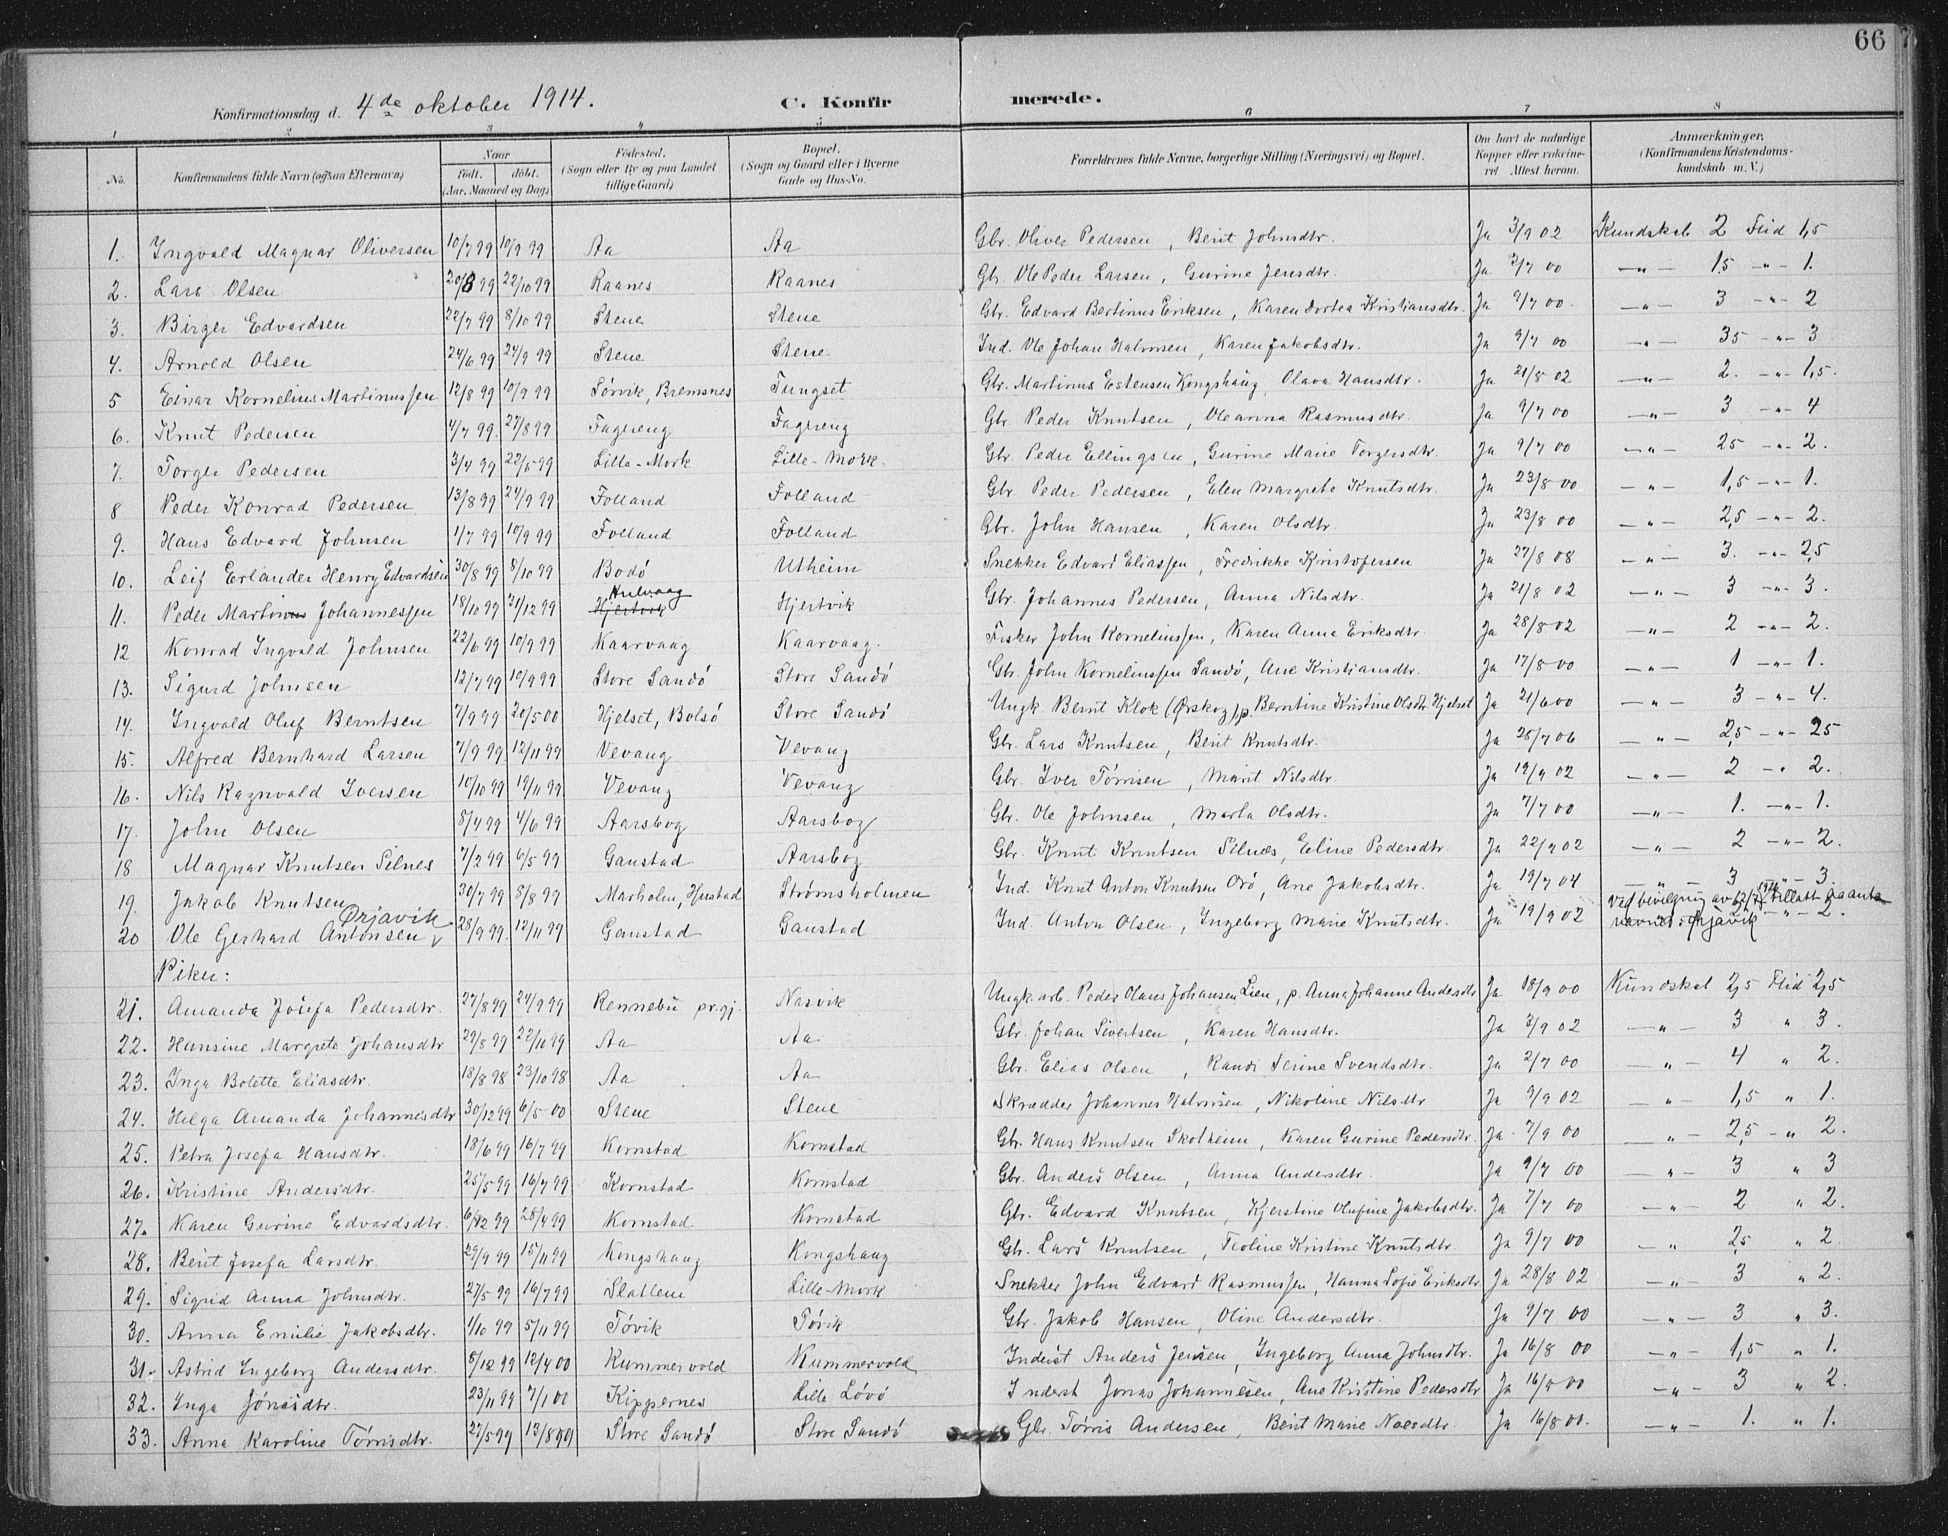 66
Konfirmationsdag d. 4de oktober 1914. C. Konfirmerede.
1 2 3 4 5 6 7 8
No. Konfirmandens fulde Navn (ogsaa Efternavn) Naar født. døbt. (Aar, Maaned og Dag) Fødested. (Sogn eller By og paa Landet tillige Gaard) Bopæl. (Sogn og Gaard eller i Byerne Gade og Hus-No. Forældrenes fulde Navne, borgerlige Stilling (Næringsvei) og Bopæl. Om havt de naturlige Kopper eller vakcineret Attest herom. Anmærkninger. (Konfirmandens Kristendomskundskab m. V.)
1. Ingvald Magnar Oliversen 10/7 99 10/9 99 Aa Aa Gbr. Oliver Pedersen, Berit Johnsdtr. Ja 3/9 02 Kundskab 2 Flid 1,5
2. Lars Olsen 20/8 99 22/10 99 Raanes Raanes Gbr. Ole Peder Larsen, Gurine Jensdtr. Ja 2/7 00 —"— 15 —"— 1.
3. Birger Edvardsen 22/7 99 8/10 99 Stene Stene Gbr. Edvard Bertinus Eriksen, Karen Dortea Kristiansdtr. Ja 9/7 00. —"— 3 —"— 2
4. Arnold Olsen 24/6 99 24/9 99 Stene Stene Ind. Ole Johan Halvorsen, Karen Jakobsdtr. Ja 9/7 00 —"— 35 —"— 3
5 Einar Kornelius Martinussen 12/8 99 10/9 99 Sørvik, Bremsnes Tungset Gbr. Martinus Estensen Kongshaug, Olava Hansdtr. Ja 21/8 02 —"— 2. —"— 1,5.
6. Knut Pedersen 4/7 99. 27/8 99 Fagereng Fagereng Gbr. Peder Knutsen, Oleanna Rasmusdtr. Ja 9/7 00 —"— 3 —"— 4
7. Torger Pedersen 3/4 99 22/5 99 Lille-Mork Lille-Mork. Gbr. Peder Ellingsen, Gurine Marie Torgersdtr. Ja 9/7 00 —"— 25 —"— 2.
8 Peder Konrad Pedersen 13/8 99 24/9 99 Folland Folland Gbr. Peder Pedersen, Elen Margrete Knutsdtr. Ja 23/8 00 —"— 1,5 —"— 1.
9. Hans Edvard Johnsen 1/7 99 10/9 99 Folland Folland Gbr. John Hansen, Karen Olsdtr. Ja 23/8 00 —"— 2,5 —"— 2.
10. Leif Erlander Henry Edvardsen 30/8 99 8/10 99 Bodø Utheim Snekker Edvard Eliassen, Fredrikke Kristofersen Ja 27/8 08 —"— 3. —"— 2,5
11. Peder Martinus Johannessen 18/10 99 21/12 99 Hjertvik Hjertvik Gbr. Johannes Pedersen, Anna Nilsdtr. Ja 21/8 02 —"— 3 —"— 3.
12 Konrad Ingvald Johnsen 22/6 99 10/9 99 Kaarvaag Kaarvaag. Fisker John Kornelinssen, Karen Anna Eriksdtr. Ja 28/8 02 —"— 2 —"— 2.
13. Sigurd Johnsen 12/7 99 10/9 99 Store Sandø Store Sandø Gbr. John Kornelinssen Sandø, Ane Kristiansdtr. Ja 17/8 00 —"— 1 —"— 1.
14. Ingvald Oluf Berntsen 7/9 99 20/5 00 Hjelset, Bolsø Store Sandø Ungk. Bernt Klok (Ørskog) p. Berntine Kristine Olsdtr. Hjelset Ja 21/6 00 —"— 3 —"— 4.
15. Alfred Bernhard Larsen 7/9 99. 12/11 99 Vevang Vevang Gbr. Lars Knutsen, Berit Knutsdtr. Ja 28/7 06 —"— 2,5 —"— 25
16. Nils Ragnvald Iversen 10/10 99 19/11 99 Vevang Vevang Gbr. Iver Tørrisen, Marit Nilsdtr. Ja 19/9 02 —"— 2 —"— 2.
17. John Olsen 8/4 99 4/6 99 Aarsbog Aarsbog Gbr. Ole Johnsen, Marta Olsdtr. Ja 7/7 00 —"— 1. —"— 1.
18 Magnar Knutsen Silnes 7/2 99 6/5 99 Gaustad Aarsbog Gbr. Knut Knutsen Silnæs, Eline Pedersdtr. Ja 22/9 02 —"— 2 —"— 2.
19. Jakob Knutsen 30/7 99 8/8 99 Marholm, Hustad Strømsholmen Ind. Knut Anton Knutsen Orø, Ane Jakobsdtr. Ja 19/7 04 —"— 3 —"— 3.
20 Ole Gerhard Antonsen Ørjavik 28/9 99. 12/11 99 Gaustad Gaustad Ind. Anton Olsen, Ingeborg Marie Knutsdtr. Ja 19/9 02 Ved bevilgning av tillatt aa anta navnet: Ørjavik —"— 2.
Piker:
21. Amanda Josefa Pedersdtr. 27/8 99 24/9 99 Rennebu pr.gj. Nasvik Ungk. arb. Peder Olaus Johansen Lien, p. Anna Johanne Andersdtr Ja 18/9 00 Kundskab 2,5 Flid 2,5
22. Hansine Margrete Johansdtr 29/8 99 22/10 99 Aa Aa. Gbr. Johan Sivertsen, Karen Hansdtr. Ja 3/9 02 —"— 3 " 3.
23. Inga Bolette Eliasdtr. 18/8 98 23/10 98 Aa Aa Gbr. Elias Olsen, Randi Serine Svendsdtr. Ja 2/7 00 —"— 4 " 2.
24. Helga Amanda Johannesdtr 30/12 99 6/5 00 Stene Stene Skrædder Johannes Halvorsen, Nikoline Nilsdtr Ja 9/9 02 —"— 1,5 " 1.
25. Petra Josefa Hansdtr. 18/6 99 16/7 99 Kornstad Kornstad Gbr. Hans Knutsen Skotheim, Karen Gurine Pedersdtr. Ja. 7/9 00 —"— 2,5 —" 2.
26. Kristine Andersdtr. 25/5 99 16/7 99 Kornstad Kornstad Gbr. Anders Olsen, Anna Andersdtr. Ja 9/7 00 —"— 3 " 3
27. Karen Gurine Edvardsdtr. 6/12 99 28/4 99 Kornstad Kornstad Gbr. Edvard Knutsen, Kjerstine Olufine Jakobsdtr. Ja 7/7 00 —"— 2 " 2.
28. Berit Josefa Larsdtr. 29/9 99 15/11 99 Kongshaug Kongshaug Gbr. Lars Knutsen, Kristine Knutsdtr. Ja 9/7 00 —"— 2,5 " 2
29. Sigrid Anna Johnsdtr. 27/5 99 16/7 99 Slatlem Lille-Mork Snekker John Edvard Rasmussen, Hanna Sofie Eriksdtr. Ja 28/8 02 —"— 3 " 2.
30. Anna Emilie Jakobsdtr. 1/10 99 5/11 99 Tøvik Tøvik Gbr. Jakob Hansen, Oline Andersdtr. Ja 9/7 00 —"— 3 " 3.
31. Astrid Ingeborg Andersdtr. 8/12 99 12/4 00 Kummervold Kummervold Inderst Anders Jensen, Ingeborg Anna Johnsdtr. Ja 16/8 00 —"— 1,5 " 1.
32. Inga Jonasdtr. 23/11 99 7/1 00 Kippernes Lille Løvø Inderst Jonas Johannesen, Ane Kristine Pedersdtr Ja 16/8 00 —"— 3 " 2.
33. Anna Karoline Tørrisdtr. 27/5 99 13/8 99 Store Sandø Store Sandø Gbr. Tørris Andersen, Berit Marie Noesdtr. Ja 16/8 00. —"— 1. " 1.